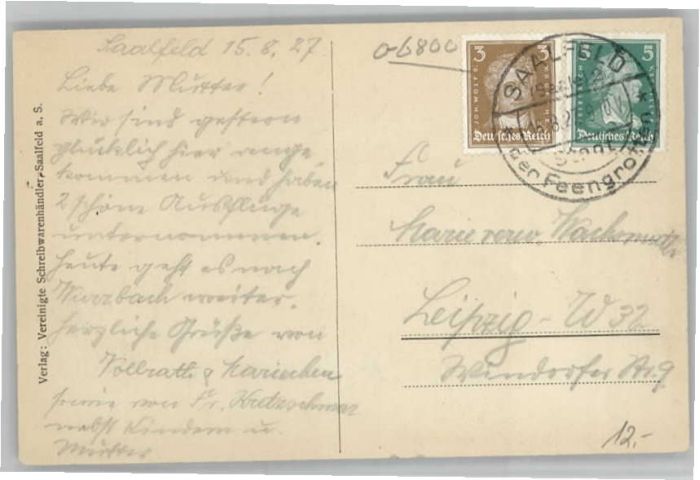 Saalfeld 15.8.27.
Liebe Mutter!
Wir sind gestern
glücklich hier ange
kommen und haben
2 schöne Ausflüge
unternommen.
Heute geht es nach
Wurzbach weiter.
Herzliche Grüße von
Vollrath & Mariechen
sowie von Fr. Kretzschmar
nebst Kindern u.
Mutter
Verlag: Vereinigte Schreibwarenhändler, Saalfeld a. S.
0-6800
3 3
Deutsches Reich
5 5
Deutsches Reich
SAALFELD
der Feengrotten
Frau
Marie verw. Wachsmuth
Leipzig - W 32
Windorfer Str. 9
12.-